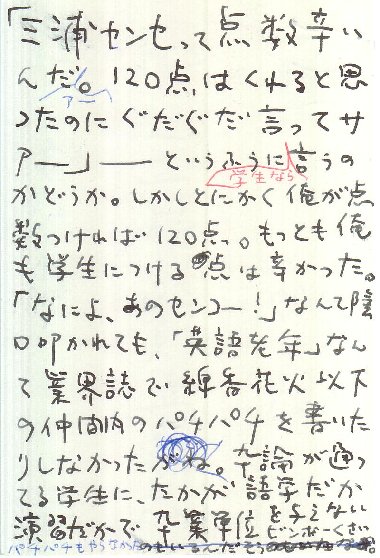 「三浦センセって点数辛い
んだ。120点はくれると思
アー
ったのにぐだぐだ言ってサ
アー」――というふうに言うの
学生なら
かどうか。しかしとにかく俺が点
数つければ120点。もっとも俺
も学生につける点は辛かった。
「なによ、あのセンコー!」なんて陰
口叩かれても、「英語老年」なん
て業界誌で線香花火以下
の仲間内のパチパチを書いた
りしなかったがね。卒論が通っ
てる学生に、たかが語学だか
演習だかで卒業単位を与えない
ビンボーくさい
パチパチもやらなかった